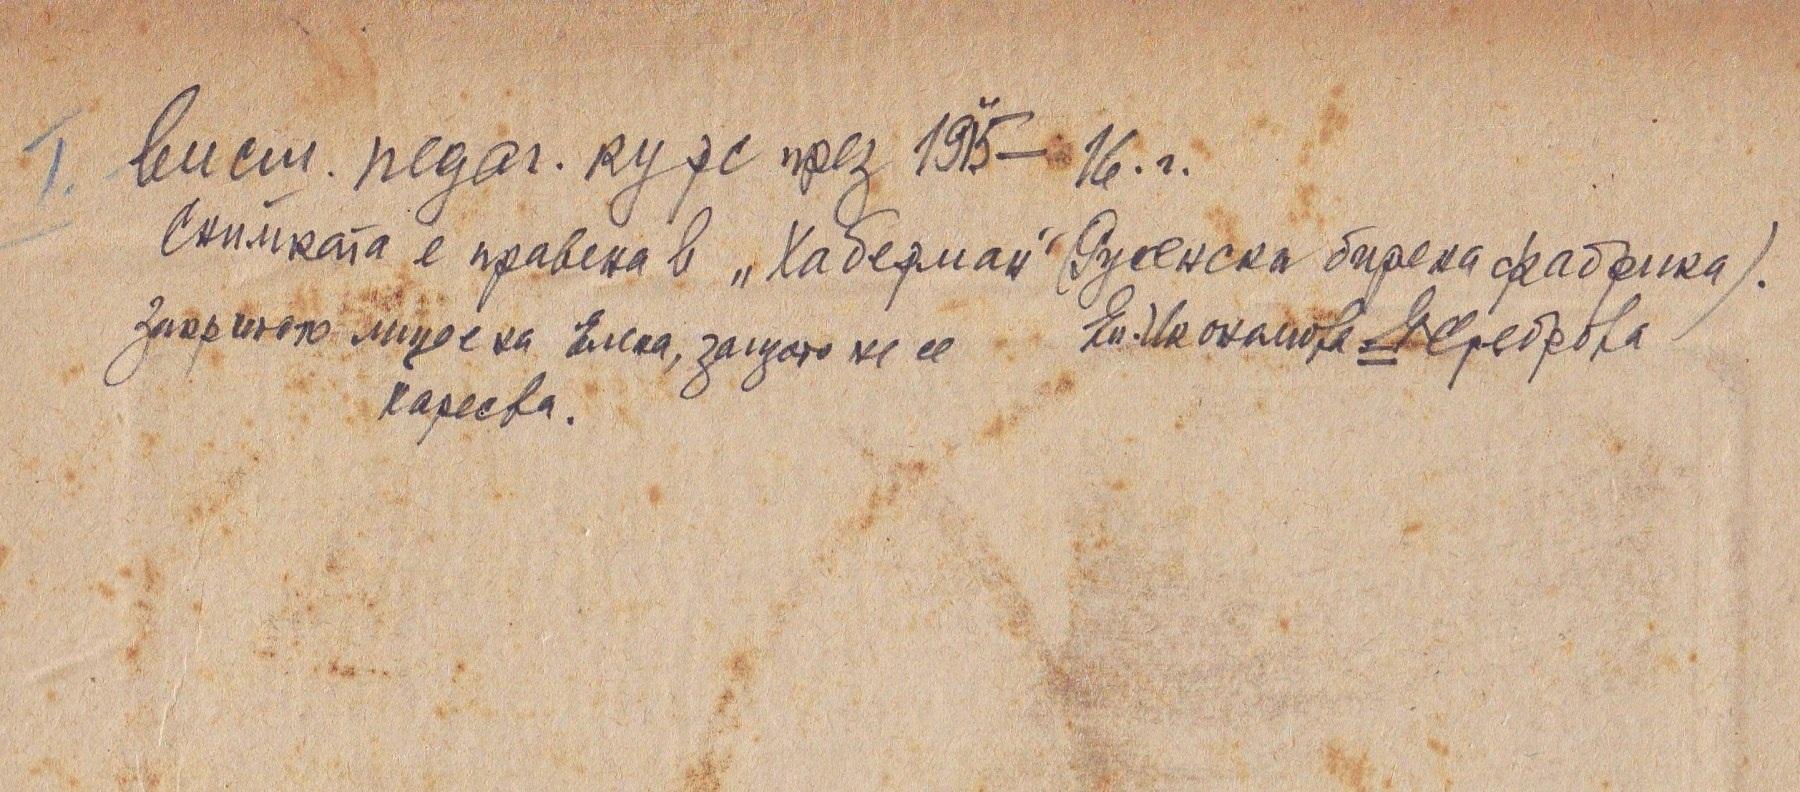 I. висш. педаг. курс през 1915 – 16. г.
Снимката е правена в „Хаберман“ (Русенска бирена фабрика).
Закритото лице е на Елена, защото не се
харесва.
Ел. Икономова = Среброва